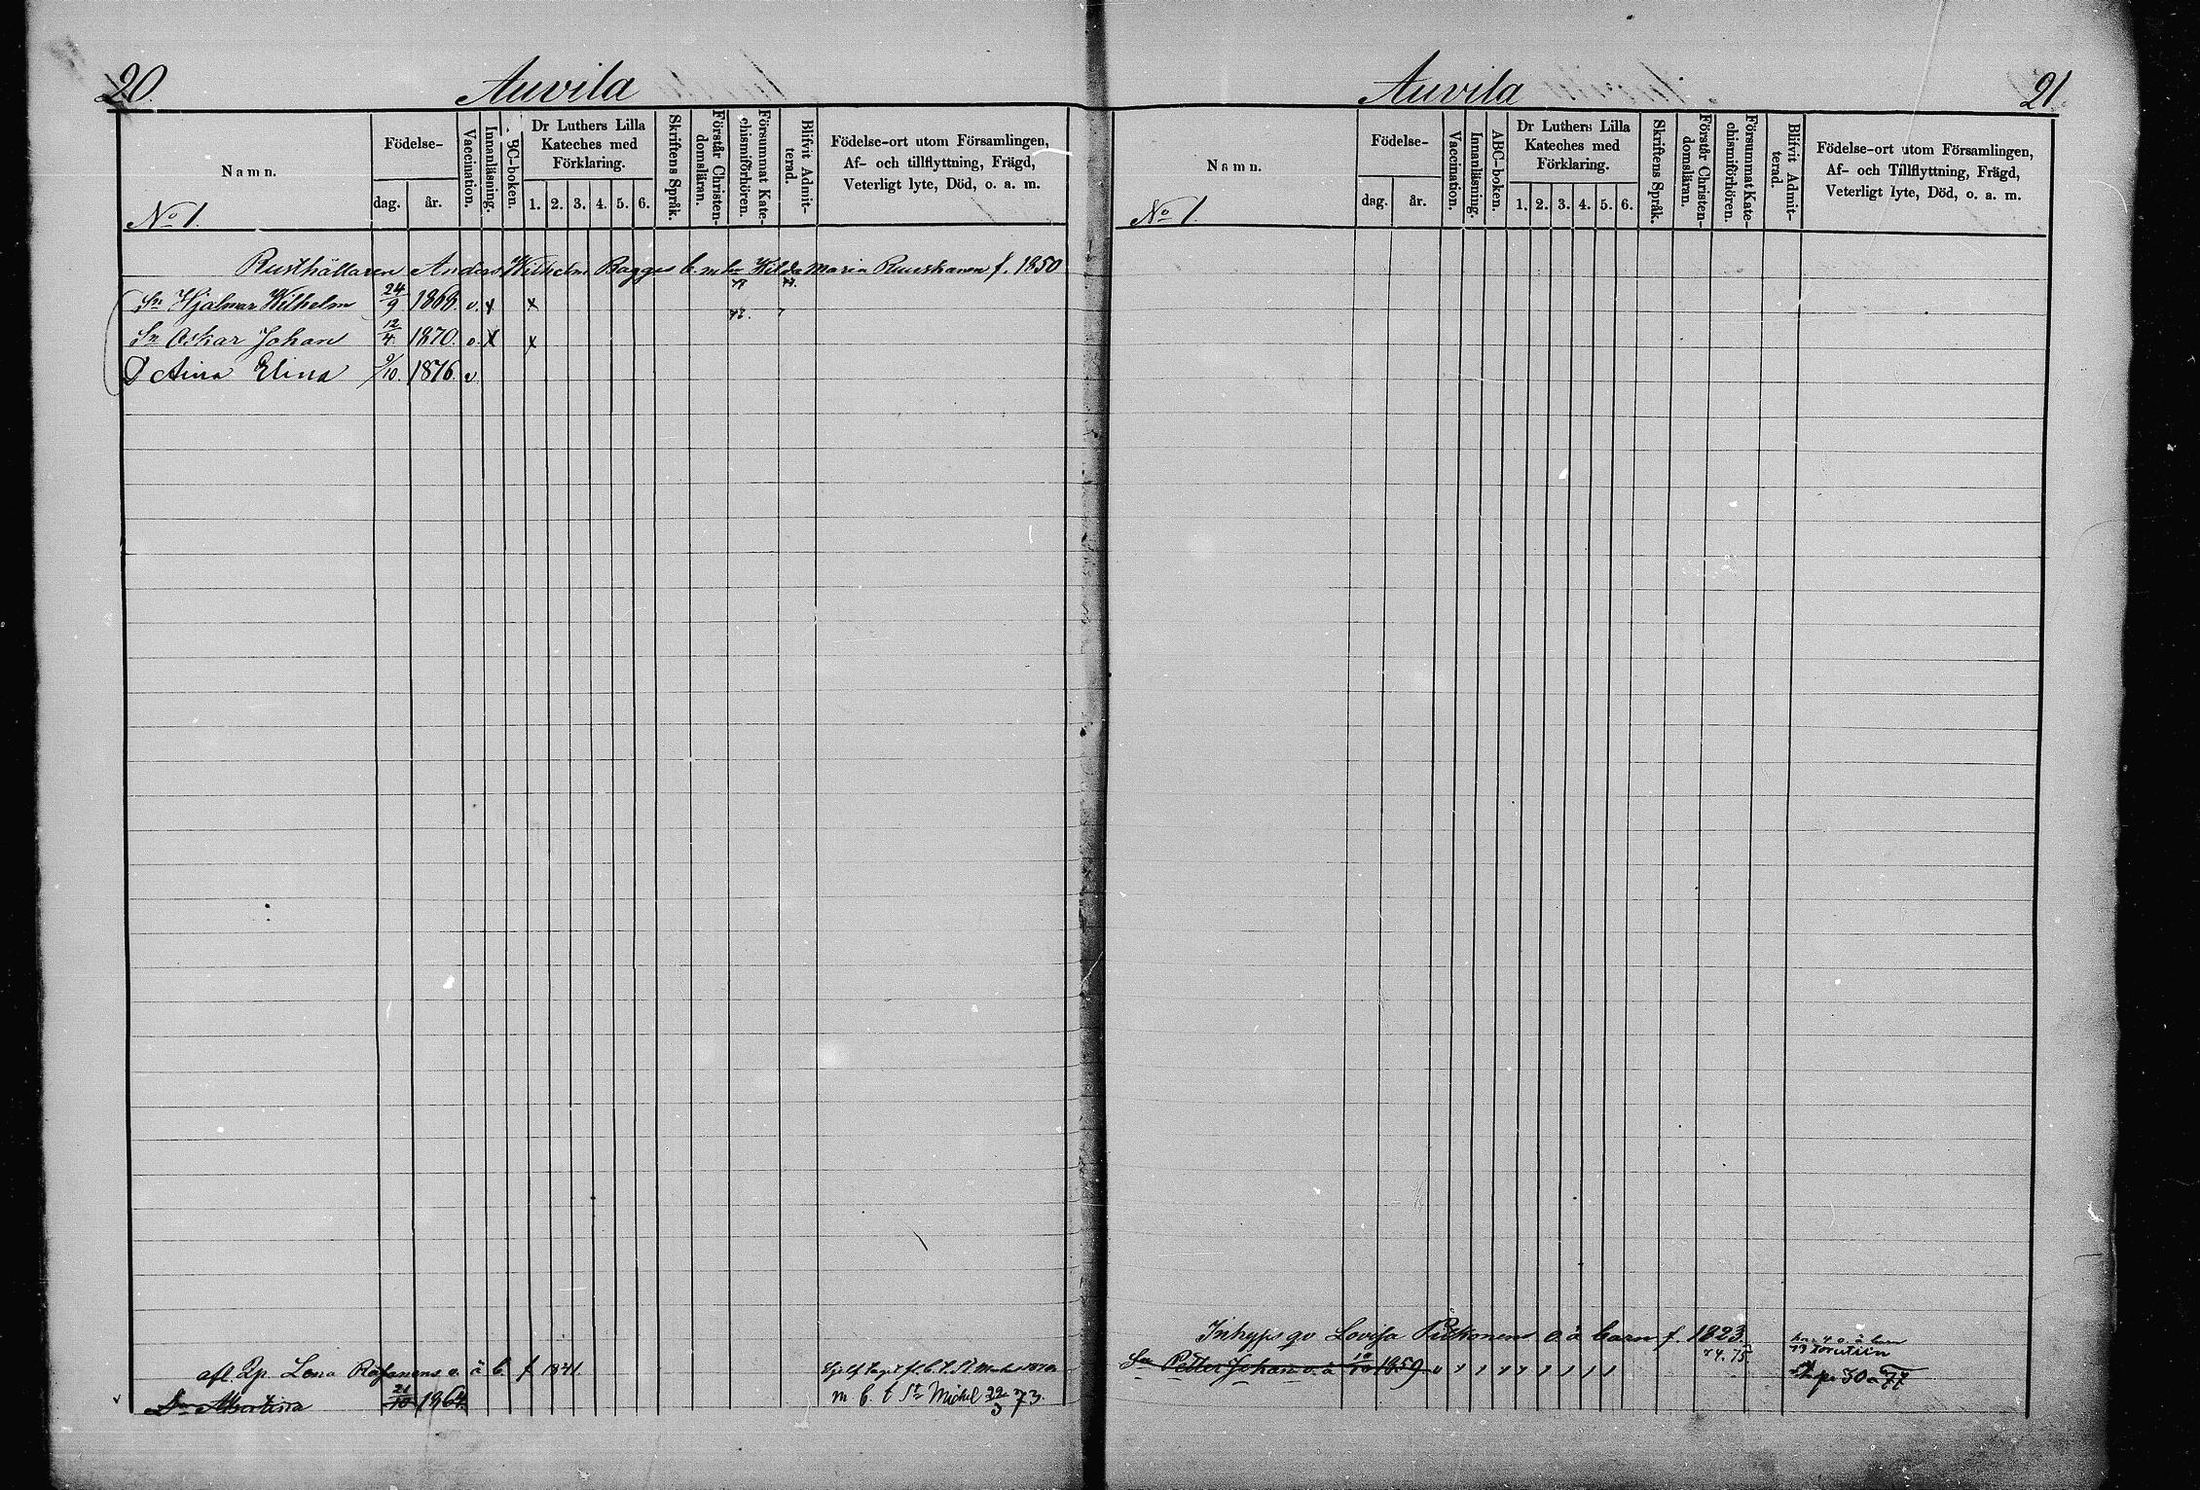 20.
Auvila
Namn.
Födelse-
dag.
år.
Vaccination.
Innanläsning.
BC-boken.
Dr Luthers Lilla
Kateches med
Förklaring.
1. 2. 3. 4. 5. 6.
Skriftens Språk.
Förstår Christen-
domsläran.
Försummat Kate-
chismiförhören.
Blifvit Admit-
terad.
Födelse-ort utom Församlingen,
Af- och tillflyttning, Frägd,
Veterligt lyte, Död, o. a. m.
No 1.
Rusthållaren Anders Wilhelm Bagges b. m. Maria f. 1850
Sn Hjalmar Wilhelm 24/9 1868. v. x x
Sn Oskar Johan 12/4 1870. v. x x
D Aina Elina 9/10. 1876. v
afl. Lena o. ä b. f 1841.
Dr Albertina 21/10 1864
m b. t St Michel 22/3 73.
Auvila
21.
Namn.
Födelse-
dag.
år.
Vaccination.
Innanläsning.
ABC-boken.
Dr Luthers Lilla
Kateches med
Förklaring.
1. 2. 3. 4. 5. 6.
Skriftens Språk.
Förstår Christen-
domsläran.
Försummat Kate-
chismiförhören.
Blifvit Admit-
terad.
Födelse-ort utom Församlingen,
Af- och Tillflyttning, Frägd,
Veterligt lyte, Död, o. a. m.
No 1.
Inhyses qv Lovisa o. ä barn f. 1823.
74. 75.
Sn Petter Johan o. ä 10/10 1859